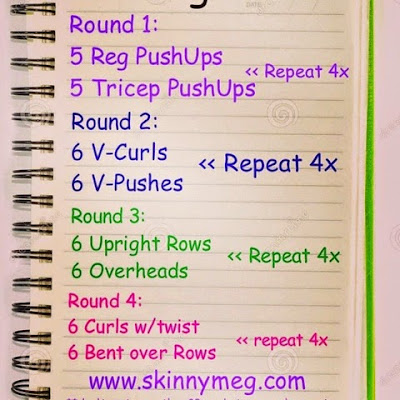 Round 1:
5 Reg PushUps
5 Tricep PushUps
<< Repeat 4x
Round 2:
6 V-Curls
6 V-Pushes
<< Repeat 4x
Round 3:
6 Upright Rows
6 Overheads
<< Repeat 4x
Round 4:
6 Curls w/twist
6 Bent over Rows
<< repeat 4x
www.skinnymeg.com